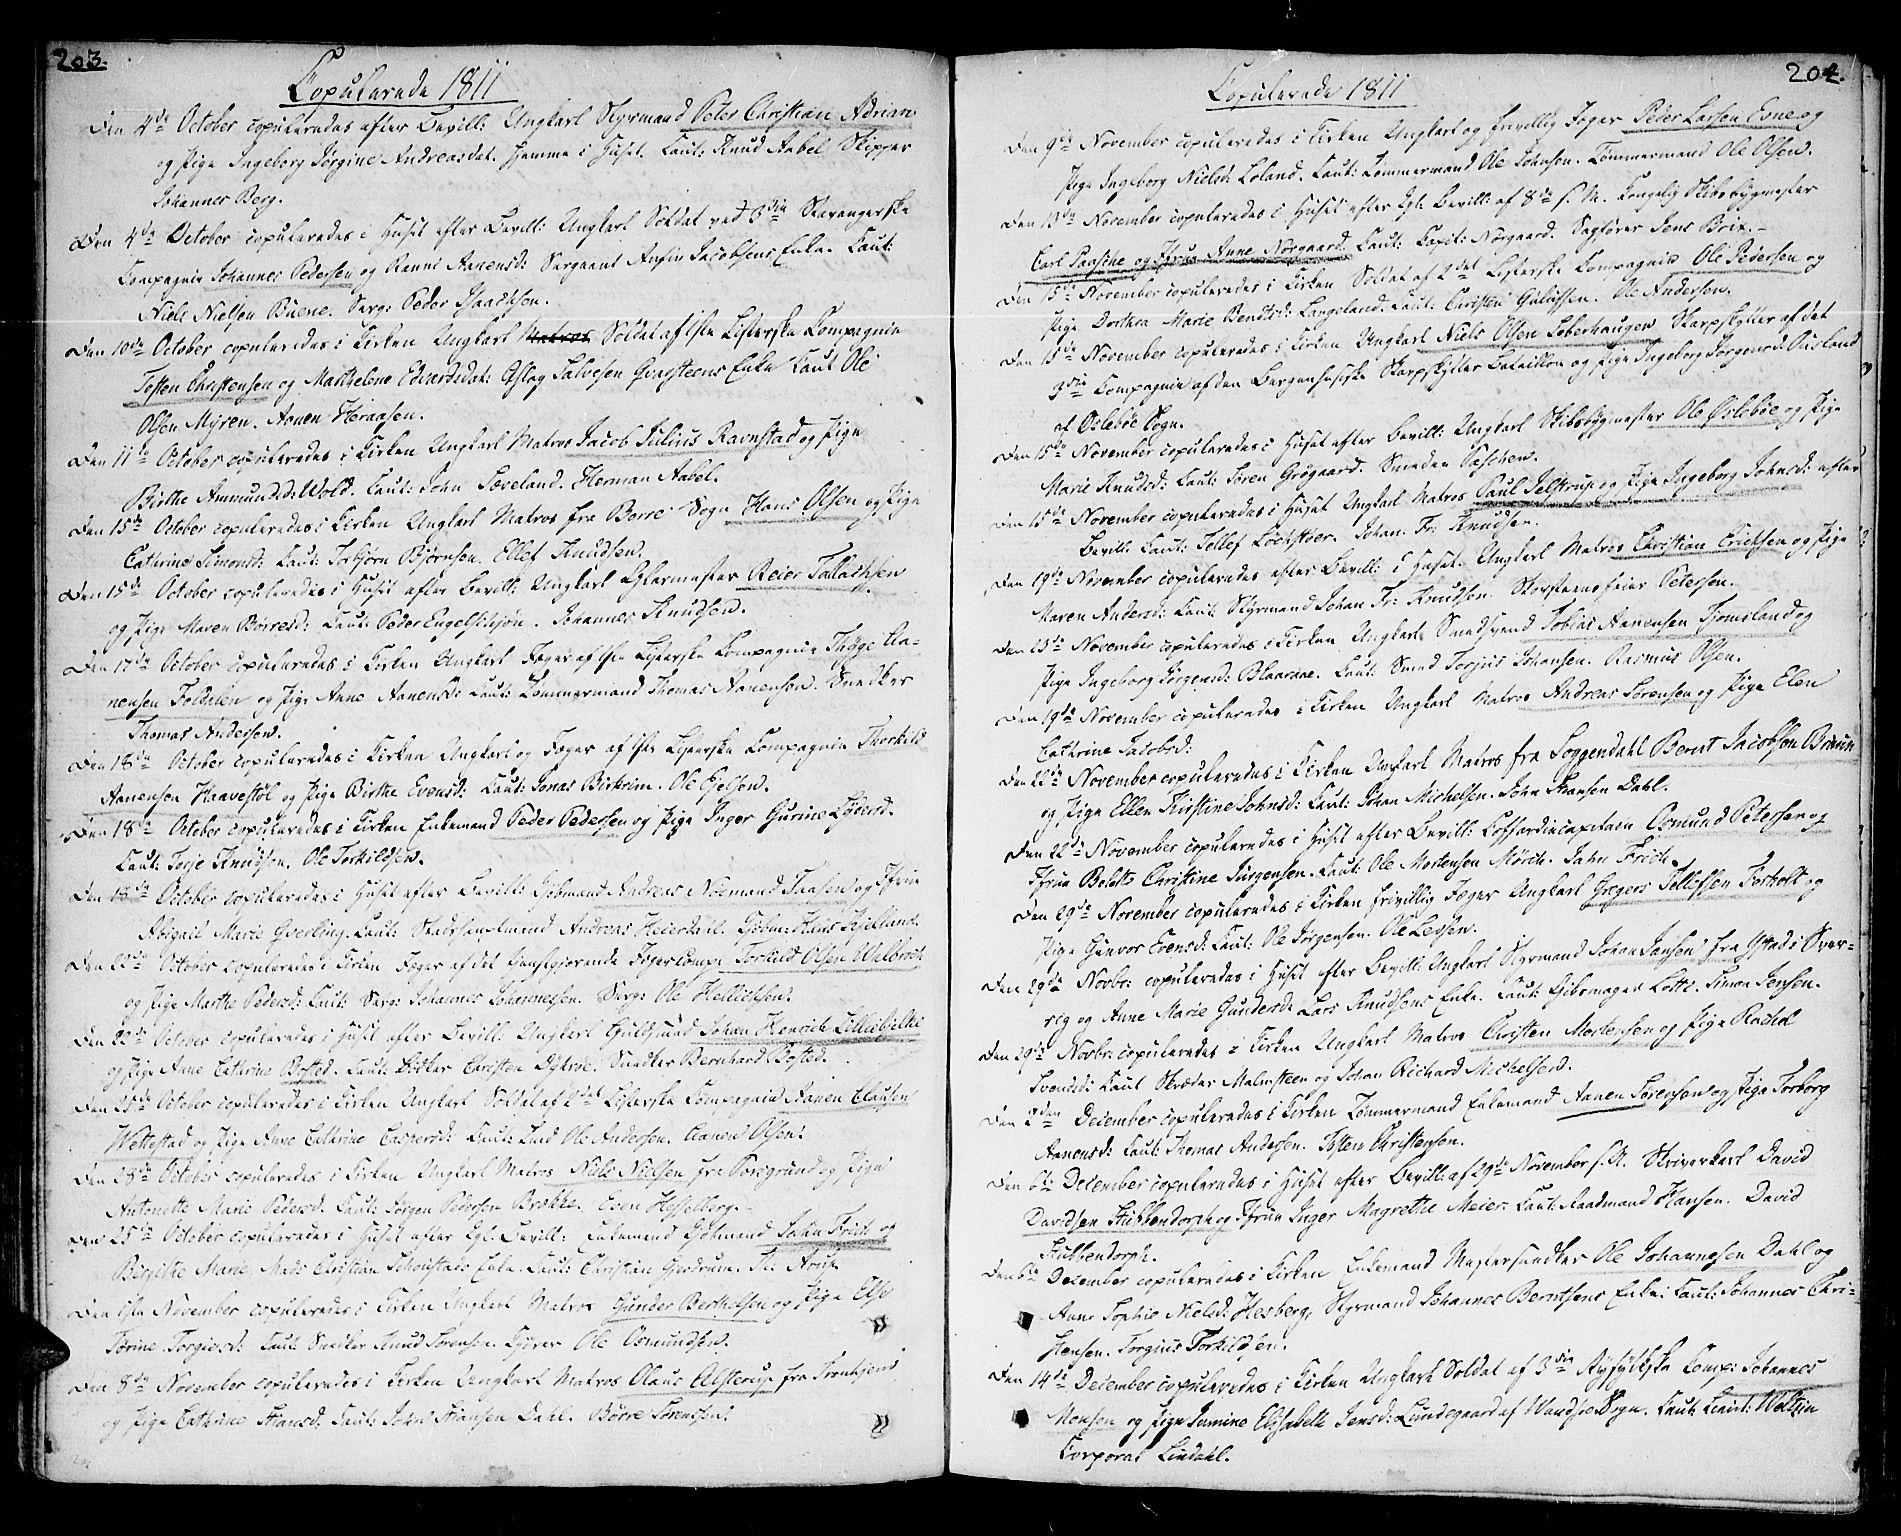 203.
Copulerede 1811
Den 4de October copuleredes efter Bevill: Ungkarl Styrmand Peter Christian Adrian
og Pige Ingeborg Jørgine Andreasdat. hjemme i Huset. Caut: Knud Aabel Skipper
Johannes Berg.
Den 4de October copuleredes i Huset efter Bevill: Ungkarl Soldat ved 3die Stavangerske
Compagnie Johannes Pedersen og Ranni Aanensd: Sergeant Anfin Jacobsens Enke. Caut:
Niels Nielsen Buene. Serg: Peder Isaachsen.
Den 10de October copuleredes i Kirken Ungkarl Matros Soldat af 1ste Listerske Compagnie
Tosten Christensen og Marthelene Edvardsdat: Aslag Salvesen Qvarsteens Enke Caut Ole
Olsen Myren. Aanen Heraasen.
Den 11te October copuleredes i Kirken Ungkarl Matros Jacob Julius Ravnstad og Pige
Birthe Ammundsd: Wold. Caut: John Sæveland. Herman Aabel.
Den 15de October copuleredes i Kirken Ungkarl Matros fra Borre Sogn Hans Olsen og Pige
Cathrine Simonsd: Caut: Torbjørn Bjørnsen. Ellef Knudsen.
Den 15de October copuleredes i Huset efter Bevill: Ungkarl Glarmester Reier Tallachsen
og Pige Maren Børresd: Caut: Peder Engelsthsjøn. Johannes Knudsen.
Den 17de October copuleredes i Kirken Ungkarl Jæger af 1ste Listerske Compagnie Thøge Aa-
nensen Foldalen og Pige Anne Aanensd: Caut: Tømmermand Thomas Aanensen. Snedker
Thomas Andersen.
Den 18de October copuleredes i Kirken Ungkarl og Jæger af 1ste Listerske Compagnie Thorkild
Aanensen Haavestøl og Pige Birthe Evensd: Caut: Jonas Birkrim. Ole Ejelsen.
Den 18de October copuleredes i Kirken Enkemand Peder Pedersen og Pige Inger Gurine Lydersd.
Caut: Terje Knudsen. Ole Torkildsen.
Den 18de October copuleredes i Huset efter Bevill: Gjbmand Andreas Normand Taasen og Jfrue
Abigail Marie Gverling. Caut: Stadshauptmand Andreas Heierdahl. Gjbm: Hans Kjelland.
Den 22de October copuleredes i Kirken Jæger af det Gevæhrgiørende Jægercomp: Torkild Olsen Walbroch
og Pige Marthe Pedersd: Caut: Serg: Johannes Johannessen. Serg: Ole Hellichsen.
Den 22de October copuleredes i Huset efter Bevill: Ungkarl Guldsmed Johan Henrich Lilliebjelke
og Pige Anne Cathrine Bosted. Caut: Christen Dykroe. Snedker Bernhard Bosted.
Den 25de October copuleredes i Kirken Ungkarl Soldat af 2det Listerske Compagnie Aanen Clausen
Wettestad og Pige Anne Cathrine Caspersd: Caut: Ole Andersen. Aanen Olsen.
Den 28de October copuleredes i Kirken Ungkarl Matros Niels Nielsen fra Porsgrund og Pige
Antonette Marie Pedersd. Caut: Jørgen Pedersen Brekke. Even Hesselberg.
Den 25de October copuleredes i Huset efter Kgl: Bevill: Enkemand Gjbmand Jahn Frich og
Birgitte Marie Mads Christian Schoustads Enke. Caut: Christian Gjerdrum. Arup.
Den 1ste November copuleredes i Kirken Ungkarl Matros Gunder Berthelsen og Pige Else
Torine Torgiersd: Caut: Snedker Knud Sørensen. Ole Osmundsen.
Den 8de November copuleredes i Kirken Ungkarl Matros Olaus Alsterup fra Tronhjem
og Pige Cathrine Hansd: Caut: John Hansen Dahl. Børre Sørensen.
204.
Copulerede 1811
Den 9de November copuleredes i Kirken Ungkarl og frivillig Jæger Peder Larsen Evne og
Pige Ingeborg Nielsd: Loland. Caut: Tømmermand Ole Johnsen. Tømmermand Ole Olsen.
Den 13de November copuleredes i Huset efter Kgl: Bevill: af 8de s. M. Kongelig Skibsbygmester
Carl Paasche og Jfrue Anne Nørgaard. Caut: Capit: Nørgaard. Sagfører Jens Brix.
Den 15de November copuleredes i Kirken Soldat af 2det Listerske Compagnie Ole Pedersen og
Pige Dorthea Marie Bendtsd: Langeland. Caut: Christen Gulussen. Ole Andersen.
Den 15de November copuleredes i Kirken Ungkarl Niels Olsen Loberhaugen Skarpskytter af det
3die Compagnie af den Bergenhusiske Skarpskytter Bataillon og Pige Ingeborg Jørgensd: Ausland
af Oslebøe Sogn.
Den 15de November copuleredes i Huset efter Bevill: Ungkarl Skibsbygmester Ole Øslebøe og Pige
Marie Knudsd: Caut: Søren Grøgaard. Smeden Paschen.
Den 15de November copuleredes i Huset Ungkarl Matros Paul Jelstrup og Pige Ingeborg Johnsd: efter
Bevill: Caut: Tellef Lochstøer. Johan Fr: Knudsen.
Den 19de November copuleredes efter Bevill: i Huset Ungkarl Matros Christian Erichsen og Pige
Maren Andersd: Caut: Styrmand Johan Fr: Knudsen. Skorsteensfeier Petersen.
Den 23de November copuleredes i Kirken Ungkarl Smedsvend Tobias Aanensen Tjomsland og
Pige Ingeborg Jørgensd: Blaaraae. Caut: Smed Torjus Johansen. Rasmus Olsen.
Den 19de November copuleredes i Kirken Ungkarl Matros Andreas Sørensen og Pige Elen
Cathrine Jacobsd:
Den 22de November copuleredes i Kirken Ungkarl Matros fra Soggendahl Bernt Jacobsen Bruun
og Pige Ellen Kirstine Johnsd: Caut: Johan Michelsen. John Hansen Dahl.
Den 22de November copuleredes i Huset efter Bevill: Coffardiecapitain Osmund Petersen og
Jfrue Bolette Christine Jürgensen. Caut: Ole Mortensen Mörch. Jahn Frich.
Den 29de November copuleredes i Kirken frivillig Jæger Ungkarl Gregers Tellefsen Forholt og
Pige Gunvor Evensd: Caut: Ole Jørgensen. Ole Levsen.
Den 29de Novbr: copuleredes i Huset efter Bevill: Ungkarl Styrmand Johan Jansen fra Ystad i Sver-
rig og Anne Marie Gundersd: Lars Knudsens Enke. Caut: Gjibsmager Lotti. Simon Jensen.
Den 29de Novbr: copuleredes i Kirken Ungkarl Matros Christen Mortensen og Pige Rachel
Svendsd: Caut Skræder Malmsteen og Johan Richard Michelsen.
Den 2den December copuleredes i Kirken Tømmermand Enkemand Aanen Sørensen og Pige Torborg
Aanensd: Caut: Thomas Andersen. Tosten Christensen.
Den 6te December copuleredes i Huset efter Bevill: af 29de November s. A. Skriverkarl David
Davidsen Stubbendorph og Jfrue Inger Magrethe Meier. Caut: Raadmand Hansen. David
Stubbendorph.
Den 6te December copuleredes i Kirken Enkemand Mestersnedker Ole Johannesen Dahl og
Anne Sophie Nielsd: Hesberg, Styrmand Johannes Berntsens Enke: Caut: Johannes Chri-
stensen. Torgius Torkildsen.
Den 14de December copuleredes i Kirken Ungkarl Soldat af 3die Ryfylkske Comp: Johannes
Monsen og Pige Jermine Elisabeth Jensd: Lundegaard af Wandsøe Sogn. Caut: Lieut: Weltzin
Corporal Lindahl.